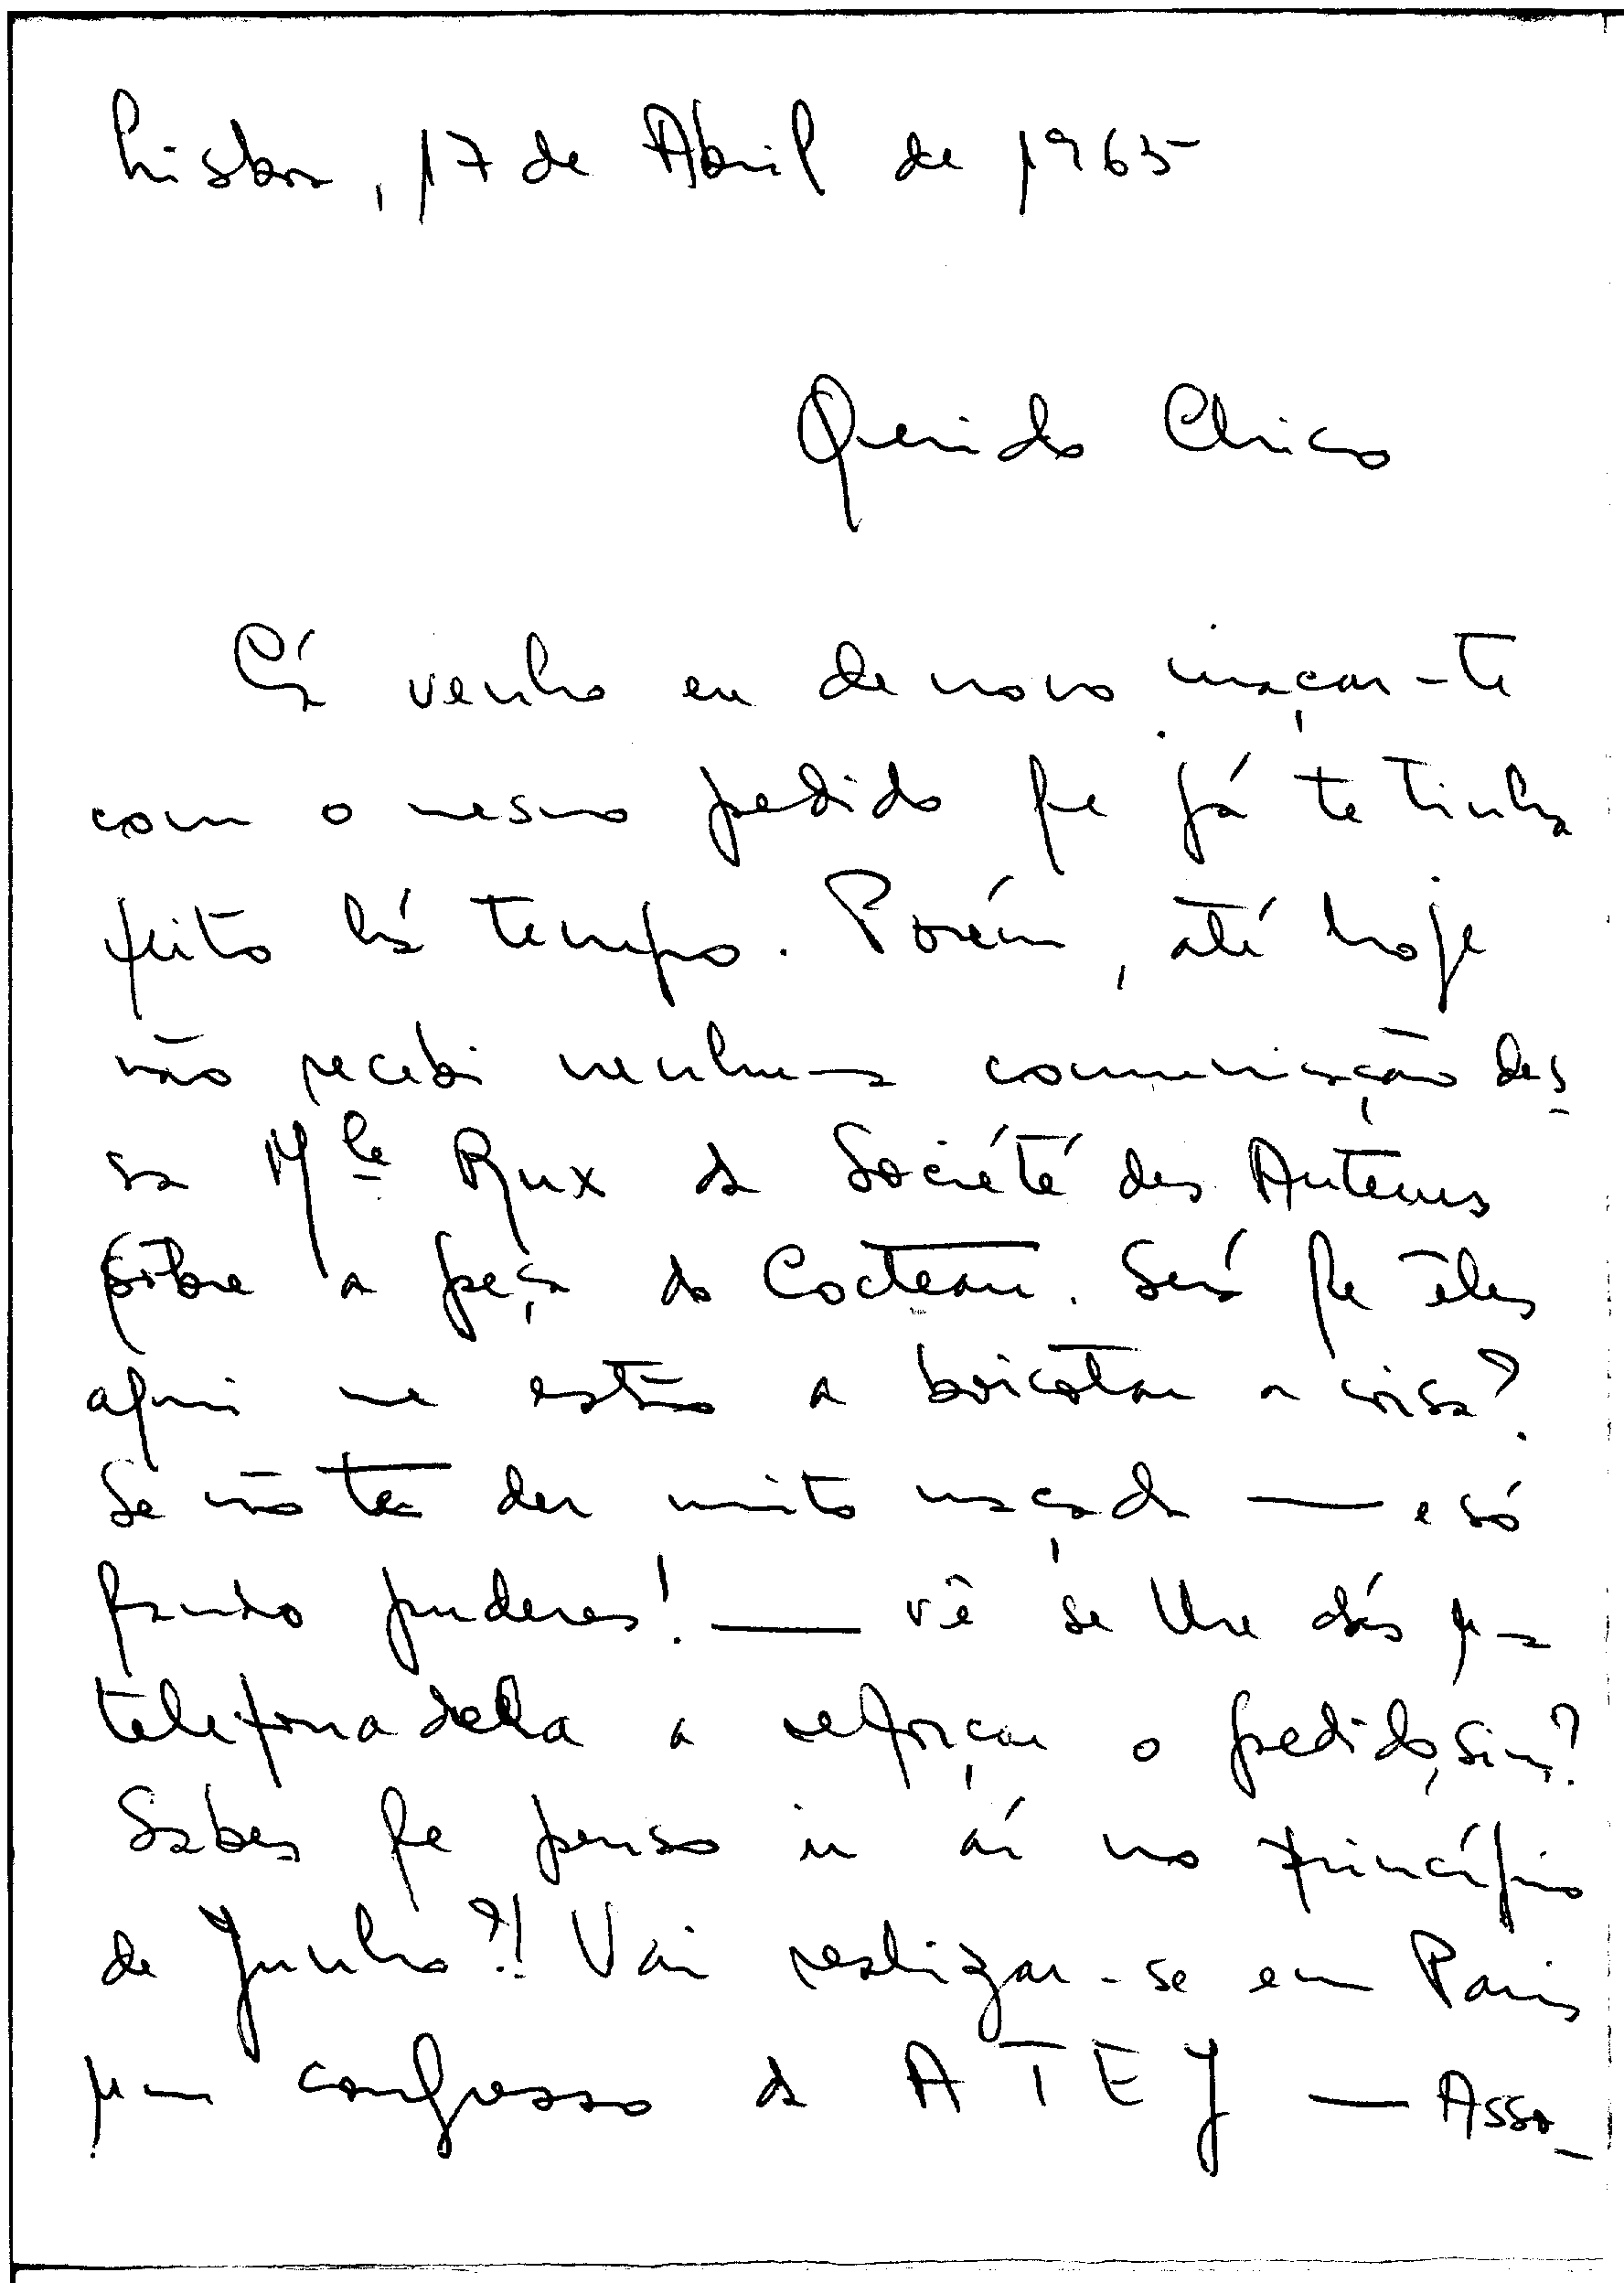 Lisboa, 17 de Abril de 1965
Querido Chico
Cá venho eu de novo maçar-te
com o mesmo pedido que já te tinha
feito há tempo. Porém, até hoje
não recebi nenhuma comunicação des-
sa Mlle Rux da Société des Auteurs
sôbre a peça do Cocteau. Será que êles
aqui me estão a boicotar a coisa?
Se não te der muita maçada — e só
quando puderes! — vê se lhe dás uma
telefonadela a reforçar o pedido, sim?
Sabes que penso ir aí no princípio
de Junho?! Vai realizar-se em Paris
um congresso da ATEJ — Asso-